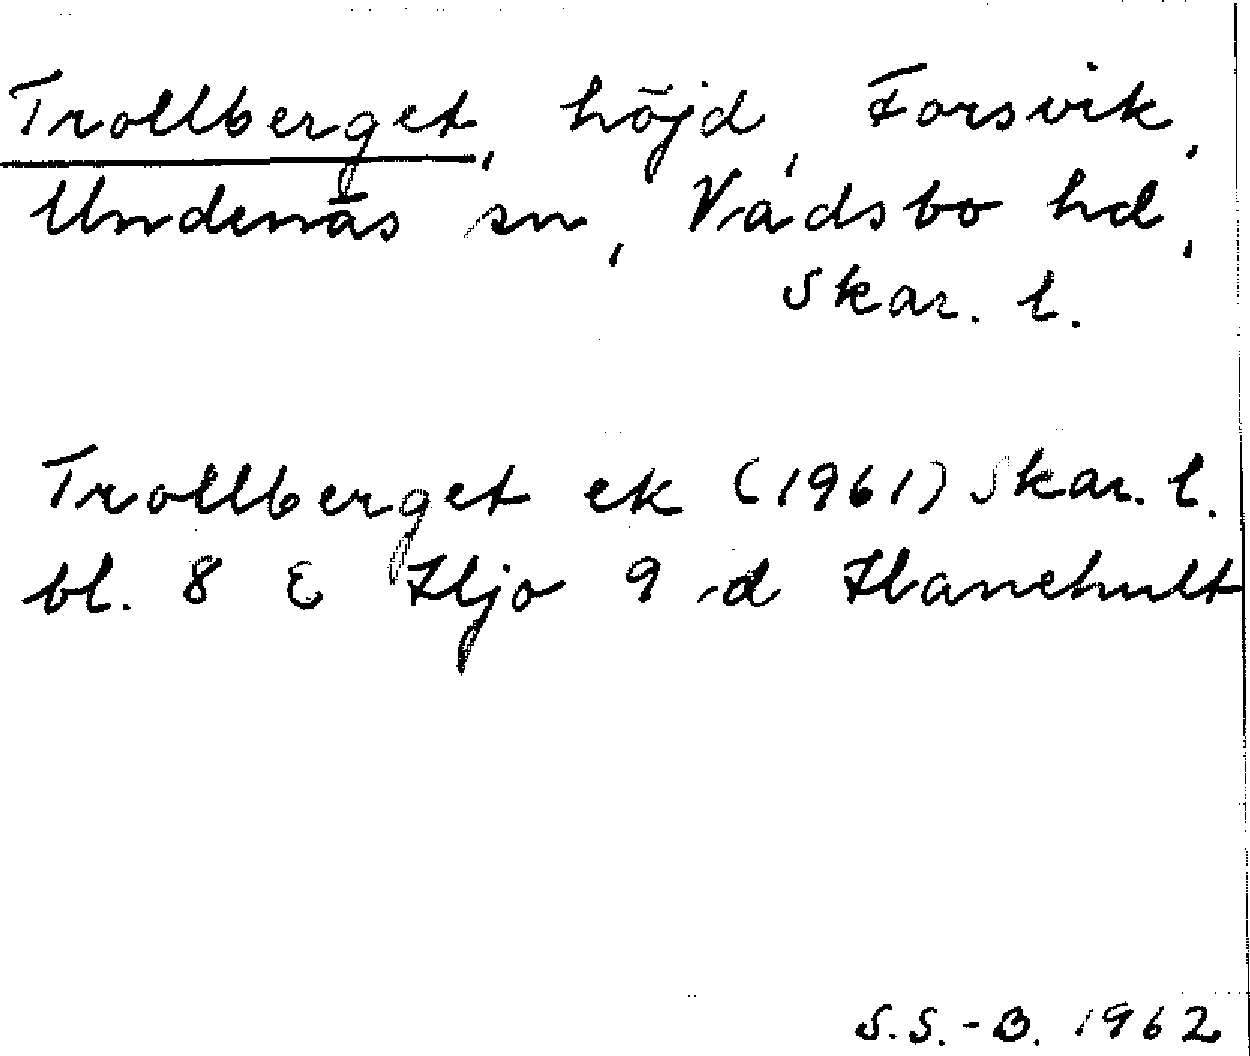 Trollberget, höjd, Forsvik,
Undenäs sn, Vadsbo hd,
Skar. l.
Trollberget ek (1961) Skar. l.
bl. 8 E Hjo 9 d Hanehult
S.S.-B. 1962